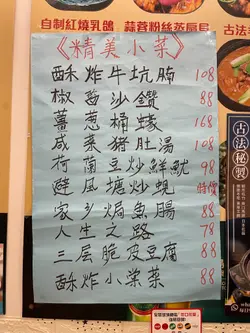 自制紅燒乳鴿
蒜蓉粉絲蒸扇貝
古法
《精美小菜》
酥炸牛坑腩 108
椒鹽沙鑽 88
薑葱桶蠔 168
咸菜猪肚湯 108
荷蘭豆炒鮮魷 98
避風塘炒蜆 特價
家乡焗魚腸 88
人生之路 78
三层脆皮豆腐 88
酥炸小棠菜 88
古法秘製